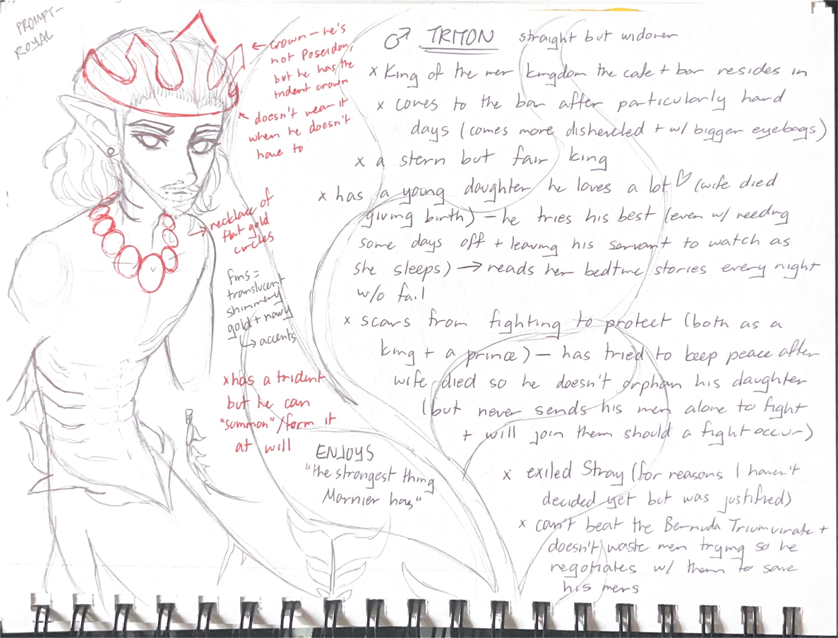 PROMPT-
ROYAL
← crown - he's
not Poseidon,
but he has the
trident crown
* doesn't wear it
when he doesn't
have to
→ necklace of
flat gold
circles
fins =
translucent
shimmery
gold + navy
↳ accents
x has a trident
but he can
"summon"/form it
at will
ENJOYS
"the strongest thing
Marnier has"
♂ TRITON straight but widower
x King of the mer kingdom the cafe + bar resides in
x comes to the bar after particularly hard
days (comes more disheveled + w/ bigger eyebags)
x a stern but fair king
x has a young daughter he loves a lot ♡ (wife died
giving birth) - he tries his best (even w/ needing
some days off + leaving his servant to watch as
she sleeps) → reads her bedtime stories every night
w/o fail
x scars from fighting to protect (both as a
king + a prince) - has tried to keep peace after
wife died so he doesn't orphan his daughter
(but never sends his men alone to fight
+ will join them should a fight occur)
x exiled Stray (for reasons I haven't
decided yet but was justified)
x can't beat the Bermuda Triumvirate +
doesn't waste men trying so he
negotiates w/ them to save
his mers